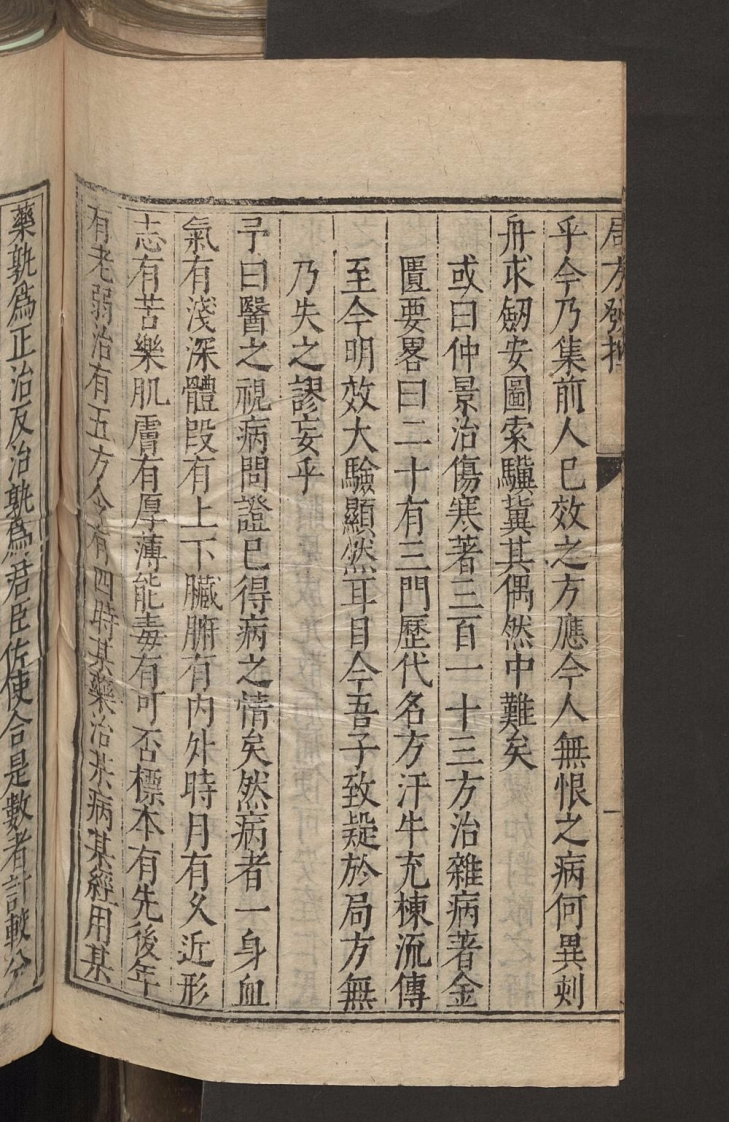 局方發揮
一
乎今乃集前人已效之方應今人無恨之病何異刻
舟求劒安圖索驥冀其偶然中難矣
或曰仲景治傷寒著三百一十三方治雜病著金
匱要畧曰二十有三門歷代名方汗牛充棟流傳
至今明效大驗顯然耳目今吾子致疑於局方無
乃失之謬妄乎
予曰醫之視病問證已得病之情矣然病者一身血
氣有淺深體段有上下臟腑有内外時月有久近形
志有苦樂肌膚有厚薄能毒有可否標本有先後年
有老弱治有五方令有四時某藥治某病某經用某
藥孰爲正治反治孰爲君臣佐使合是數者計較分